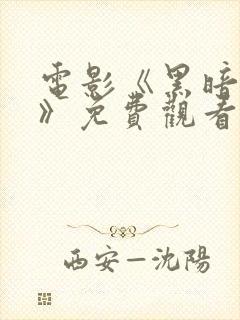 電影《黑暗
》免費觀看
西安—沈陽